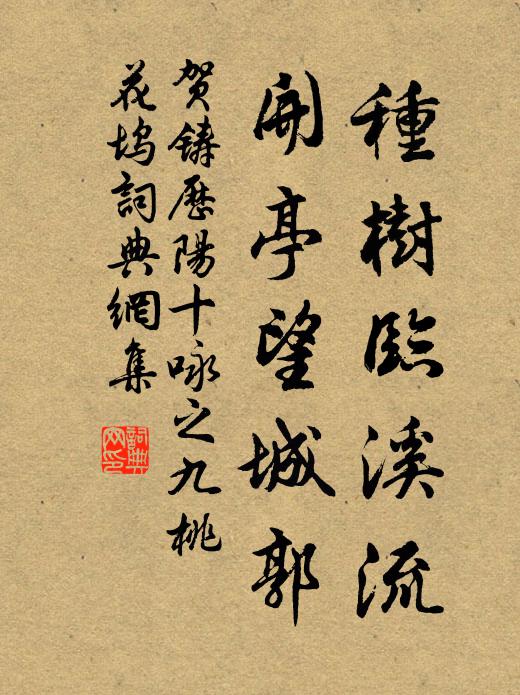 種樹臨溪流
開亭望城郭
賀鑄歷陽十咏之九桃
花塢詞典網集
詞典网印